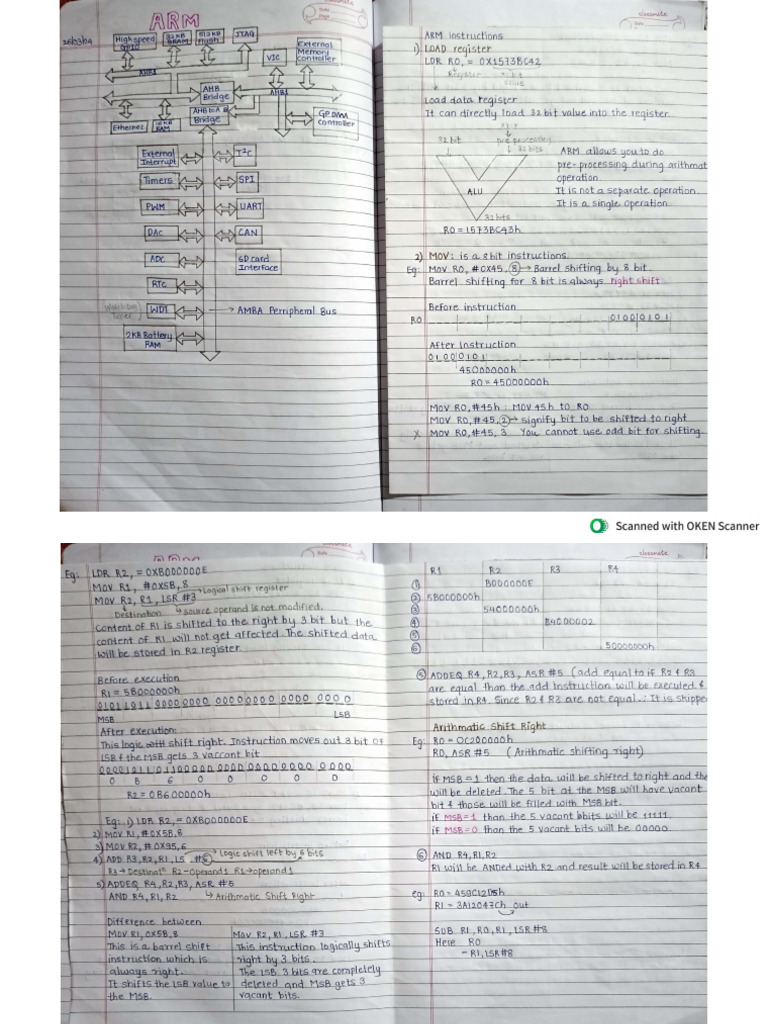 ARM
classmate
Date
Page
26/03/24
High speed GPIO
32 KB SRAM
512 KB Flush
JTAG
External Memory Controller
VIC
AHB2
AHB Bridge
AHB1
AHB to A B Bridge
GP DMA Controller
Ethernet
RAM
External Interrupt
I²C
Timers
SPI
PWM
UART
DAC
CAN
ADC
SD card Interface
RTC
Watch Dog Timer
WDT
AMBA Perripheral Bus
2KB Battery RAM
classmate
ARM instructions
1) LOAD register
LDR R0, = 0X1573BC42
Register
Load data register
It can directly load 32 bit value into the register.
32 bit
pre processing
32 bits
ALU
32 bits
ARM allows you to do
pre-processing during arithmat
operation.
It is not a separate operation.
It is a single operation.
R0 = 1573BC43h
2) MOV: is a 8 bit instructions.
Eg: MOV R0, #0X45, 8 → Barrel shifting by 8 bit.
Barrel shifting for 8 bit is always right shift
Before instruction
R0 0100 0101
After instruction
0100 0101
45000000h
R0 = 45000000h
MOV R0, #45h : MOV 45h to R0
MOV R0, #45, 2 → signify bit to be shifted to right
X MOV R0, #45, 3 You cannot use odd bit for shifting.
Scanned with OKEN Scanner
Eg: LDR R2, = 0XB000000E
MOV R1, #0X5B, 8
MOV R2, R1, LSR #3 → Logical shift register
Destination → source operand is not modified.
Content of R1 is shifted to the right by 3 bit but the
content of R1 will not get affected. The shifted data
will be stored in R2 register.
Before execution
R1 = 5B000000h
01011011 0000 0000 0000 0000 0000 0000
MSB LSB
After execution:
This logic shift right. Instruction moves out 3 bit of
LSB & the MSB gets 3 vaccant bit
0000 1011 0110 0000 0000 0000 0000 0000
0 B 6 0 0 0 0 0
R2 = 0B600000h
Eg: 1) LDR R2, = 0XB000000E
2) MOV R1, #0X5B, 8
3) MOV R2, #0X95, 6
4) ADD R3, R2, R1, LS #6 → Logic shift left by 6 bits
R3 → Destinatⁿ R2 → Operand1 R1 → operand1
5) ADDEQ R4, R2, R3, ASR #5
AND R4, R1, R2 → Arithmatic Shift Right
Difference between
MOV R1, 0X5B, 8
This is a barrel shift
instruction which is
always right.
It shifts the LSB value to
the MSB.
MOV R2, R1, LSR #3
This instruction logically shifts
right by 3 bits.
The LSB, 3 bits are completely
deleted and MSB gets 3
vacant bits.
classmate
R1 R2 R3 R4
1 B000000E
2 5B000000h
3 54000000h
4 B4000002
5
6 50000000h
5 ADDEQ R4, R2, R3, ASR #5 (add equal to if R2 & R3
are equal than the add instruction will be executed &
stored in R4. Since R2 & R3 are not equal ∴ It is shippe
Arithmatic Shift Right
Eg: R0 = 0C200000h
R0, ASR #5 (Arithmatic shifting right)
if MSB=1 then the data will be shifted to right and the
will be deleted. The 5 bit at the MSB will have vacant
bit & those will be filled with MSB bit.
if MSB=1 than the 5 vacant bits will be 11111.
if MSB=0 than the 5 vacant bits will be 00000.
6 AND R4, R1, R2
R1 will be ANDed with R2 and result will be stored in R4
eg: R0 = 459C12D5h
R1 = 3A12047Ch out
SUB R1, R0, R1, LSR #8
Here R0
- R1, LSR #8